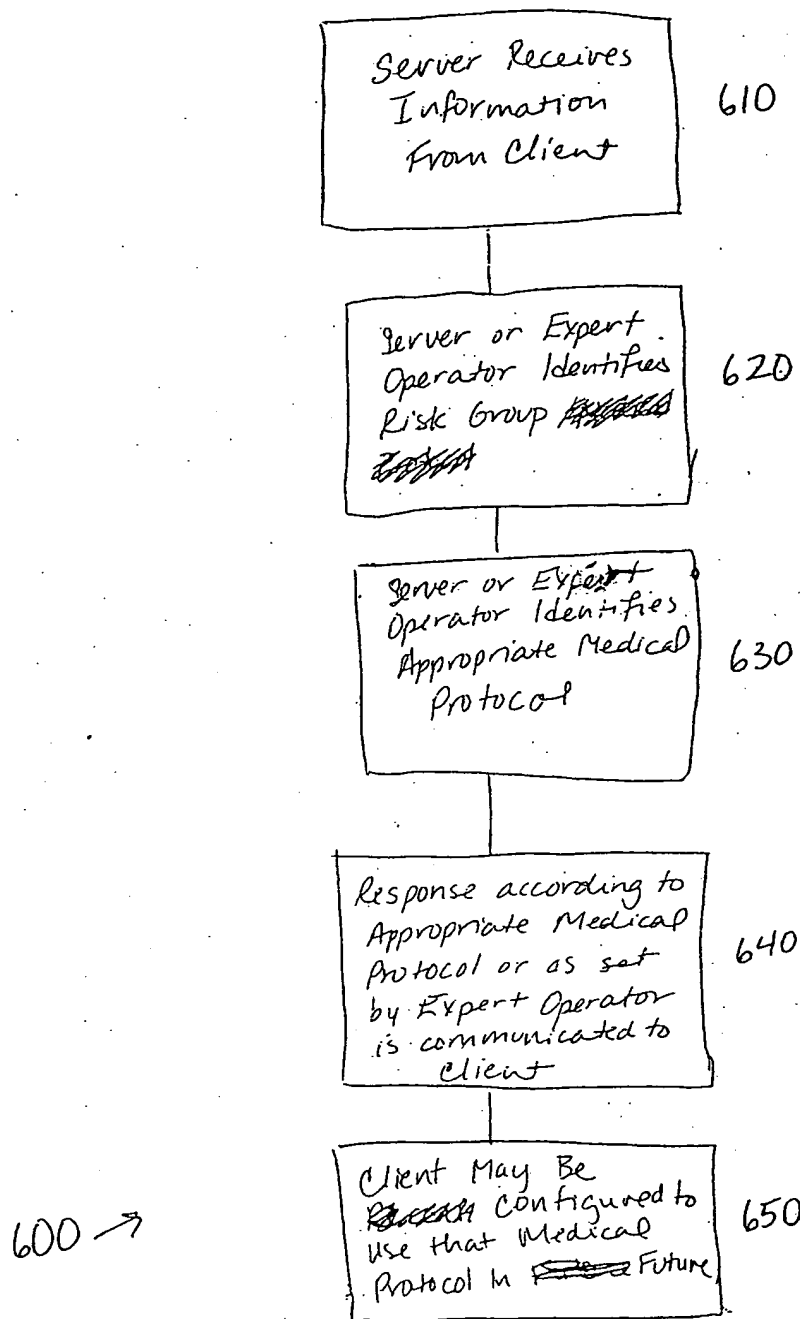 Server Receives
Information
From Client
610
Server or Expert
Operator Identifies
Risk Group
620
Server or Expert
Operator Identifies
Appropriate Medical
Protocol
630
Response according to
Appropriate Medical
Protocol or as set
by Expert Operator
is communicated to
Client
640
Client May Be
Configured to
use that Medical
Protocol in Future
650
600